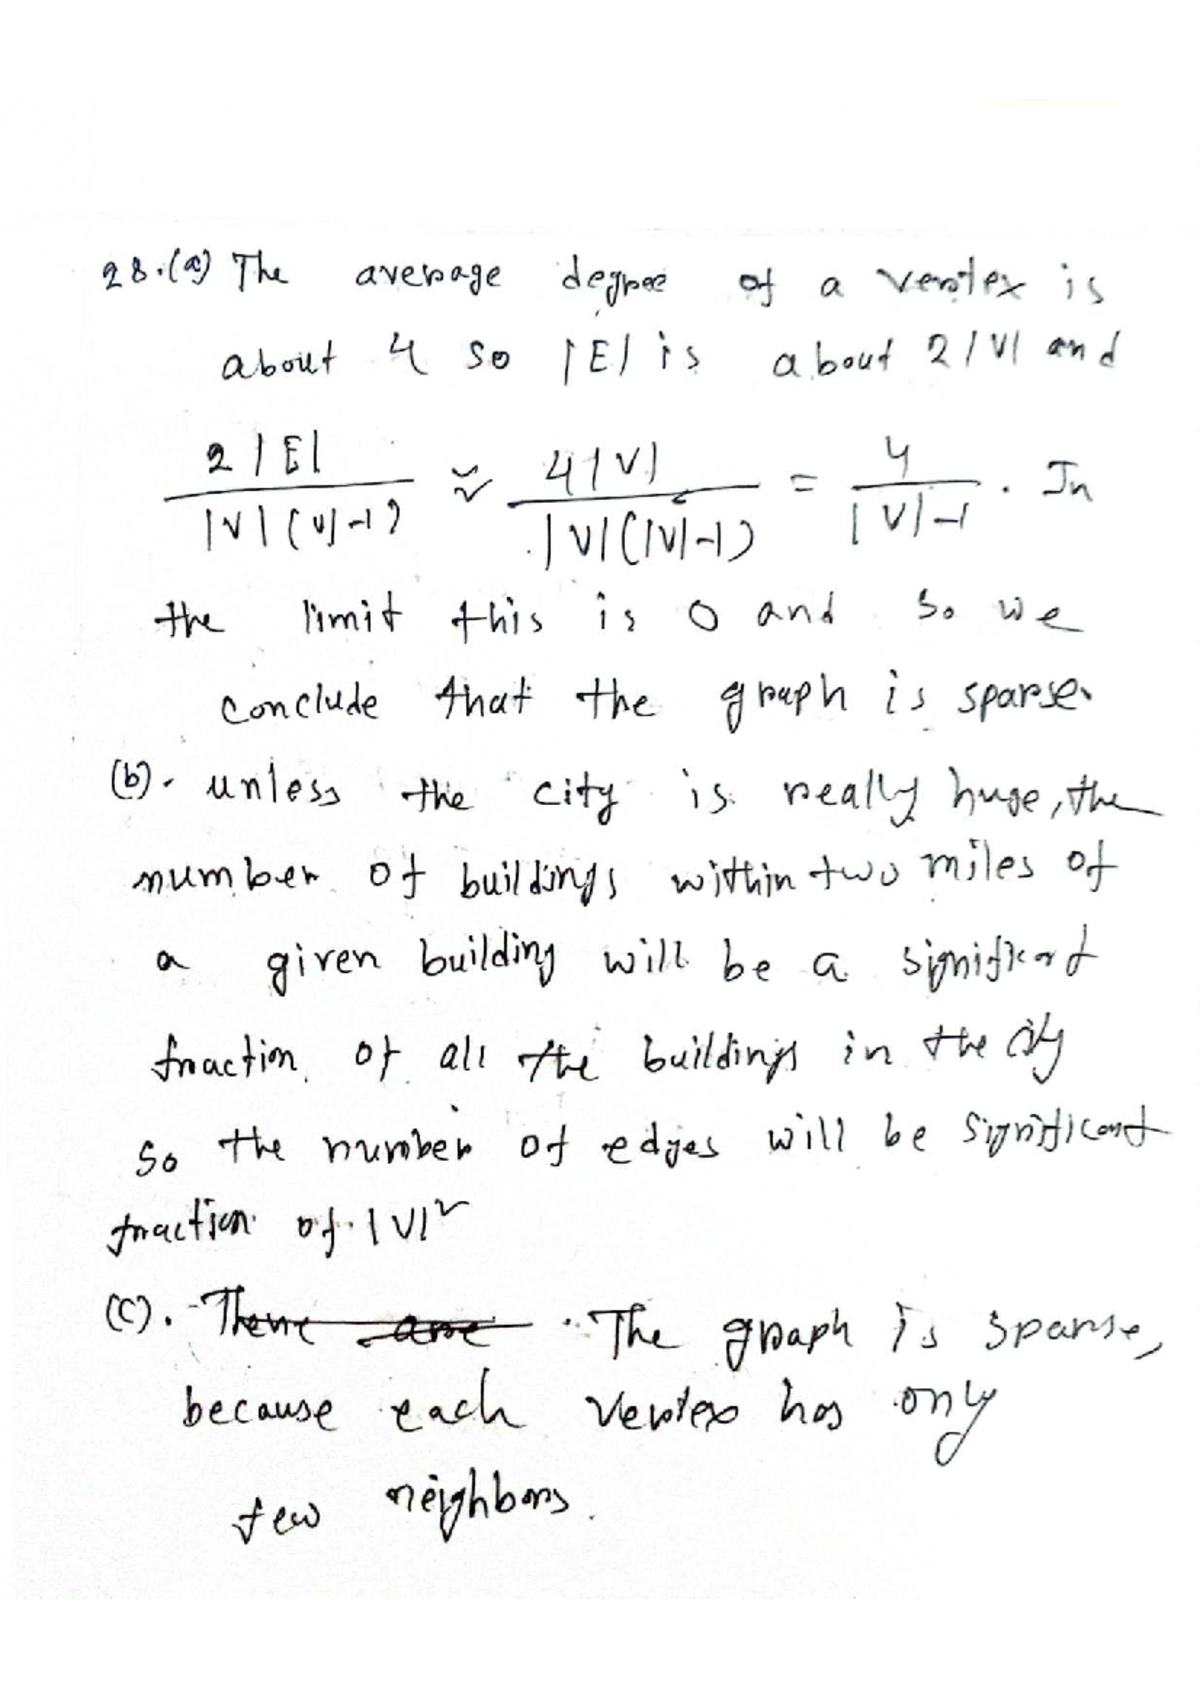 28.(a) The average degree of a vertex is
about 4 so |E| is about 2|V| and
2|E| / |V|(|V|-1) ≈ 4|V| / |V|(|V|-1) = 4 / |V|-1 . In
the limit this is 0 and so we
conclude that the graph is sparse.
(b). unless the city is really huge, the
number of buildings within two miles of
a given building will be a significant
fraction of all the buildings in the city
so the number of edges will be significant
fraction of |V|²
(c). There are The graph is sparse,
because each vertex has only
few neighbors.